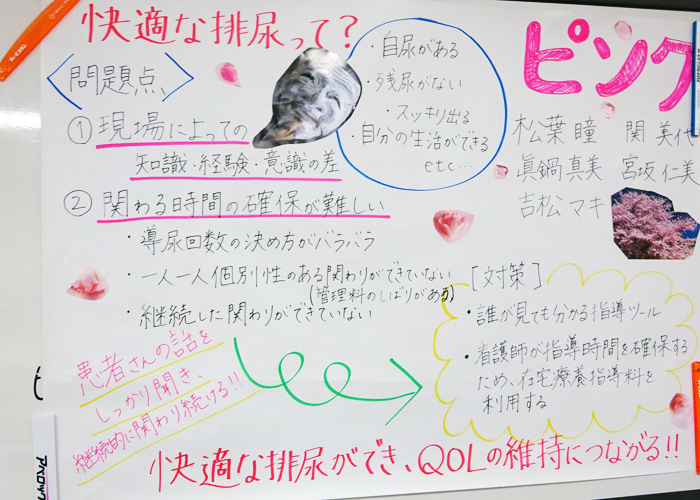 快適な排尿って?
ピンク
〈問題点〉
① 現場によっての
知識・経験・意識の差
・自尿がある
・残尿がない
・スッキリ出る
・自分の生活ができる
etc…
松葉 瞳 関 美代
眞鍋 真美 宮坂 仁美
吉松 マキ
② 関わる時間の確保が難しい
・導尿回数の決め方がバラバラ
・一人一人個別性のある関わりができていない
(管理料のしばりがある)
・継続した関わりができていない
[対策]
・誰が見ても分かる指導ツール
・看護師が指導時間を確保する
ため、在宅療養指導料を
利用する
患者さんの話を
しっかり聞き、
継続的に関わり続ける!!
快適な排尿ができ、QOLの維持につながる!!